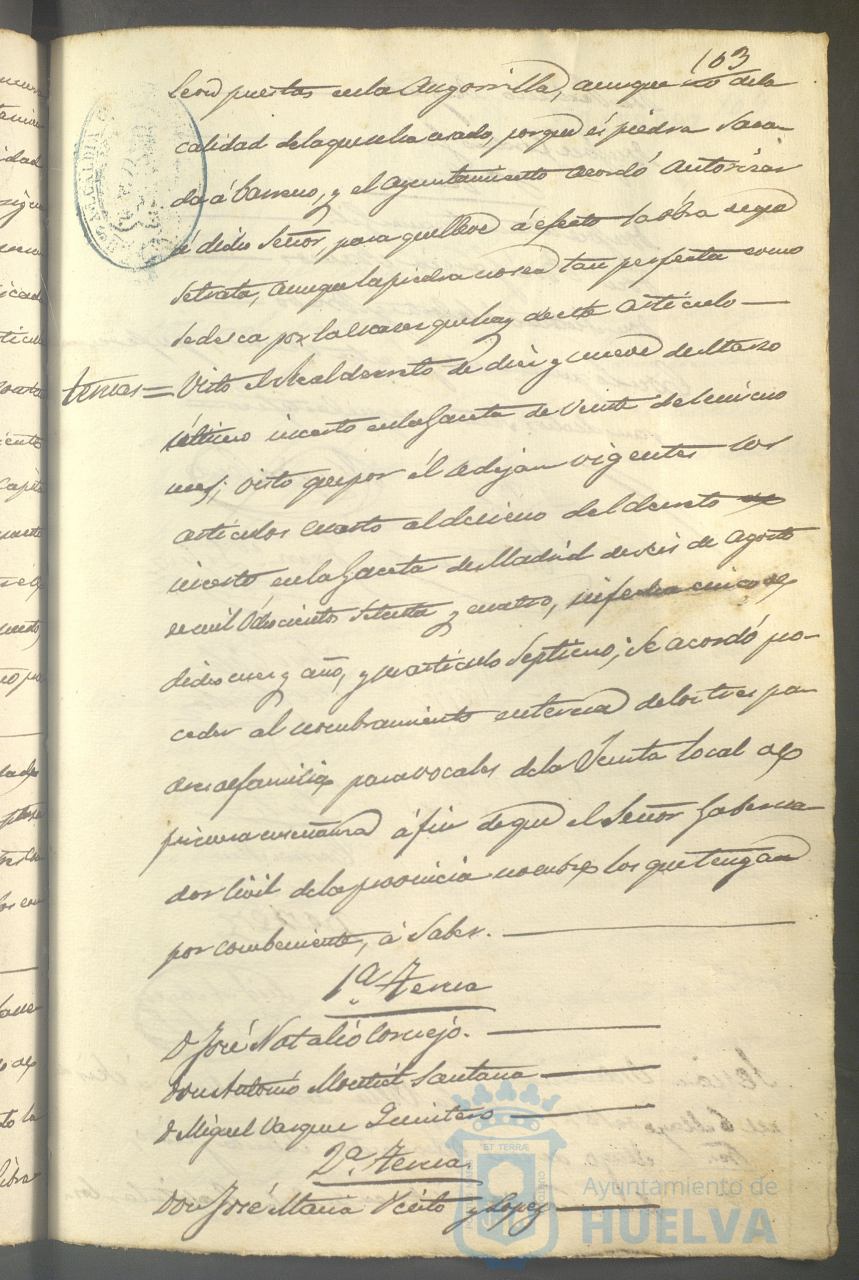 103
leon puestas en la Angorrilla, aunque no de la
calidad de la que se ha usado, porque és piedra saca-
da á barreno, y el Ayuntamiento acordó autorizar
á dicho Señor, para que lleve á efecto la obra segun
se trata, aunque la piedra no sea tan perfecta como
se desea por la escases que hay de este artículo
ternas = Visto el Real decreto de diez y nueve de Marzo
último incerto en la Gaceta de veinte del mismo
mes; visto que por él se dejan vigentes los
artículos cuarto al decimo del decreto
incerto en la Gaceta de Madrid de seis de Agosto
de mil Ochocientos Setenta y cuatro, su fecha cinco de
dicho mes y año, y su artículo Septimo; Se acordó pro-
ceder al nombramiento en terna de los tres pa-
dres de familia para vocales de la Junta local de
primera enseñanza á fin de que el Señor Goberna-
dor Civil de la provincia nombre los que tenga
por combeniente, á Saber.
1ª Terna
D José Natalio Cornejo.
Don Antonio Montiel Santana
D Miguel Vazque Quintero
2ª Terna.
Don José Maria Vcéito y Lopez
ALCALDIA
ET TERRÆ
Ayuntamiento de
HUELVA